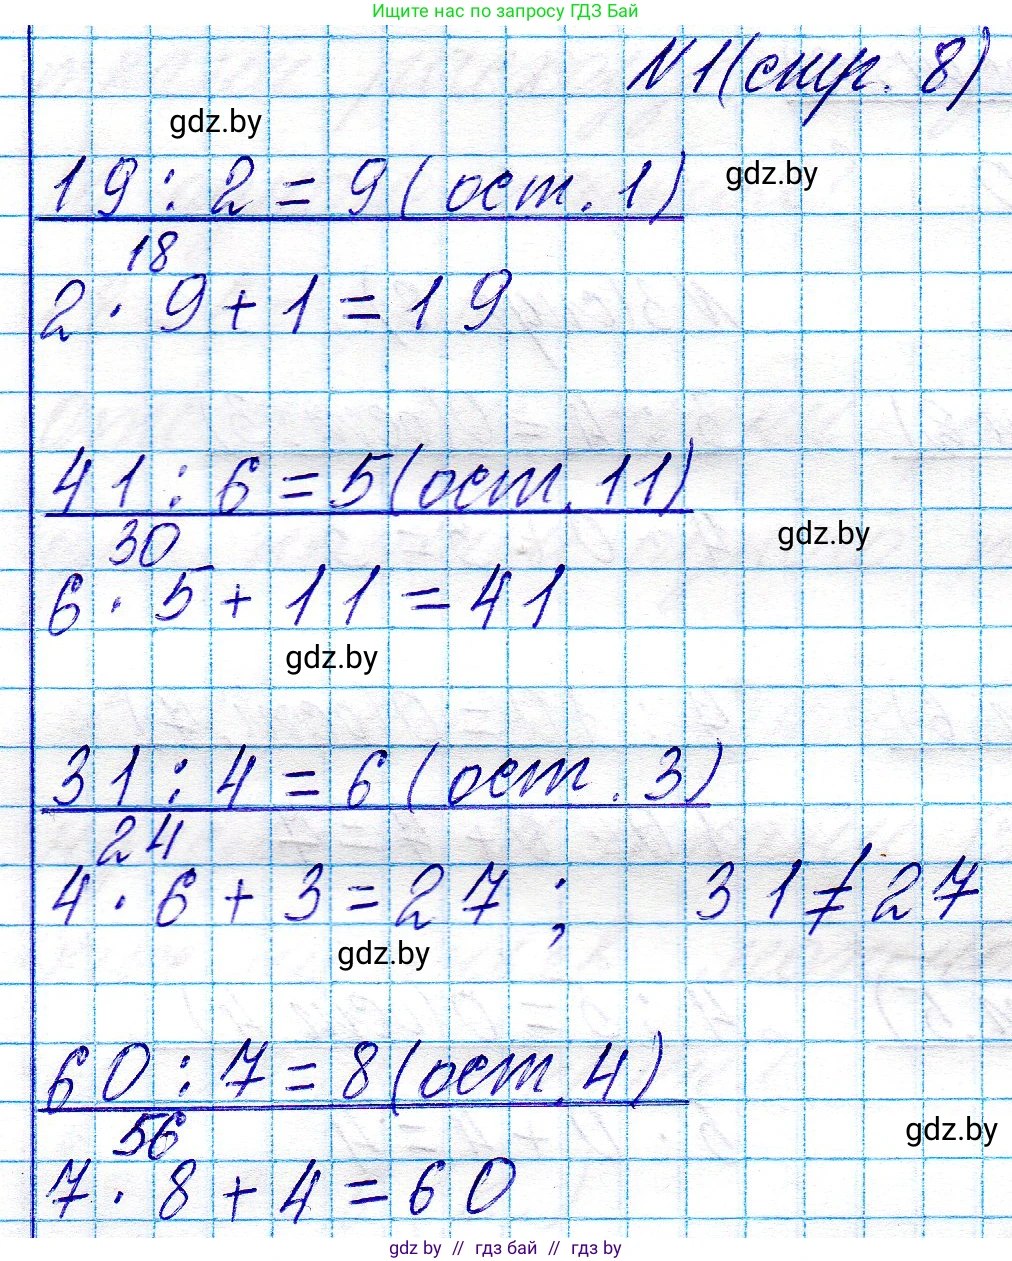 Ищите нас по запросу ГДЗ Бай
N1(стр. 8)
gdz.by
19 : 2 = 9 (ост. 1)
gdz.by
18
2 · 9 + 1 = 19
41 : 6 = 5 (ост. 11)
30
gdz.by
6 · 5 + 11 = 41
gdz.by
31 : 4 = 6 (ост. 3)
24
4 · 6 + 3 = 27 ; 31 ≠ 27
gdz.by
60 : 7 = 8 (ост. 4)
56
gdz.by
7 · 8 + 4 = 60
gdz by // гдз бай // gdz.by